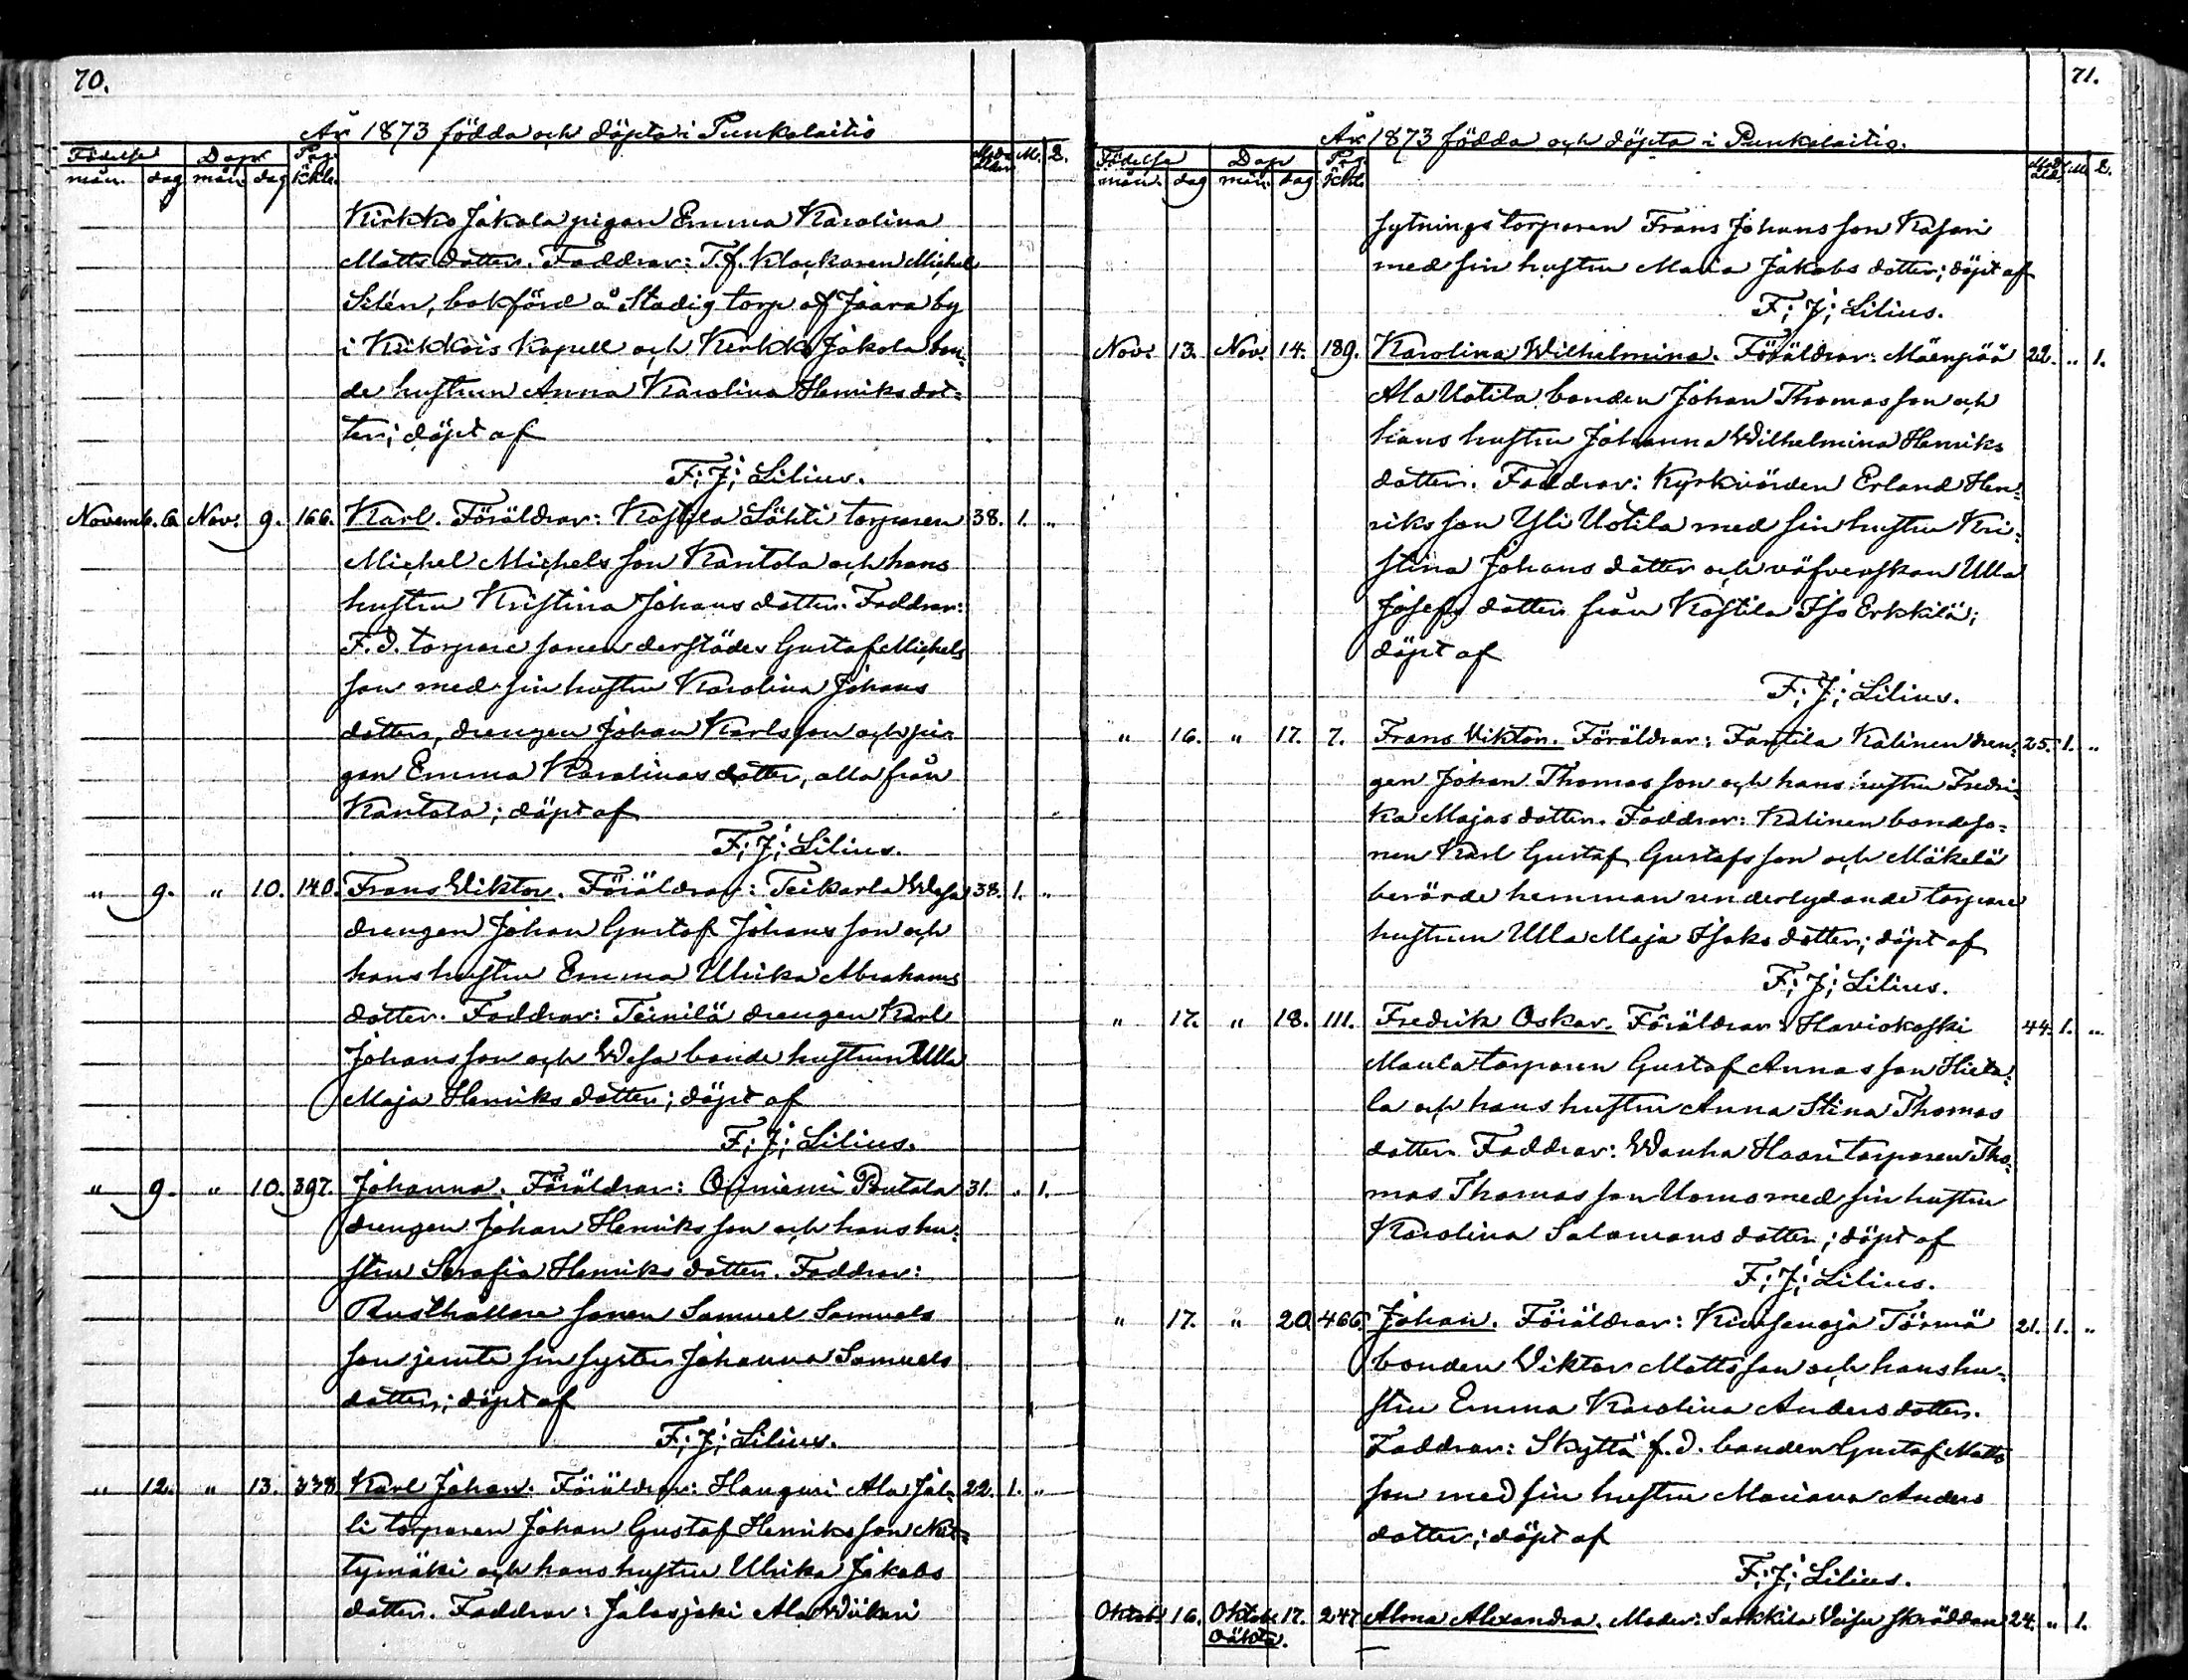 70.
År 1873 födda och döpta i Punkalaitio
Födelse Dop Pag.
mån. dag mån. dag kb. Mod. ålder M. Q.
Kirkko Jakola pigan Emma Karolina
Matts dotter. Faddrar: T.f. Klockaren Michel
Silén, bokförd å Stadig torp af Jaara by
i Kiikkois Kapell och Kirkko Jakola bon-
de hustrun Anna Karolina Henriks dot-
ter; döpt af
F; J; Lilius.
Novemb. 6. Nov. 9. 166. Karl. Föräldrar: Kostila Lähti torparen 38. 1. „
Michel Michels son Kantola och hans
hustru Kristina Johans dotter. Faddrar:
F. D. torpare sonen derstädes Gustaf Michels
son med sin hustru Karolina Johans
dotter, drengen Johan Karlsson och pi-
gan Emma Karolinas dotter, alla från
Kantola; döpt af
F; J; Lilius.
„ 9. „ 10. 140. Frans Viktor. Föräldrar: Teikarla Wesa 38. 1. „
drengen Johan Gustaf Johans son och
hans hustru Emma Ulrika Abrahams
dotter. Faddrar: Teinilä drengen Karl
Johansson och Wesa bonde hustrun Ulla
Maja Henriks dotter; döpt af
F; J; Lilius.
„ 9. „ 10. 397. Johanna. Föräldrar: Oriniemi Pentala 31. „ 1.
drengen Johan Henriks son och hans hu-
stru Serafia Henriks dotter. Faddrar:
Rusthållare sonen Samuel Samuels
son jemte sin syster Johanna Samuels
dotter; döpt af
F; J; Lilius.
„ 12. „ 13. 338. Karl Johan. Föräldrar: Haunguri Ala Jal- 22. 1. „
li torparen Johan Gustaf Henriks son
tymäki och hans hustru Ulrika Jakobs
dotter. Faddrar: Jalasjoki Ala Wiikari
71.
År 1873 födda och döpta i Punkalaitio.
Födelse Dop Pag.
mån. dag mån. dag kb. Mod. åld. M. Q.
sytnings torparen Frans Johans son Kasari
med sin hustru Maria Jakobs dotter; döpt af
F; J; Lilius.
Nov. 13. Nov. 14. 189. Karolina Wilhelmina. Föräldrar: Mäenpää 22. „ 1.
Ala Uotila bonden Johan Thomas son och
hans hustru Johanna Wilhelmina Henriks
dotter. Faddrar: Kyrkvärden Erland Hen-
riks son Yli Uotila med sin hustru Kri-
stina Johans dotter och väfverskan Ulla
Josefs dotter från Kostila Iso Erkkilä;
döpt af
F; J; Lilius.
„ 16. „ 17. 7. Frans Viktor. Föräldrar: Kalinen dren- 25. 1. „
gen Johan Thomas son och hans hustru Fredri-
ka Majas dotter. Faddrar: Kalinen bondeso-
nen Karl Gustaf Gustafs son och Mäkelä
berörde hemman underlydande torpare
hustrun Ulla Maja Isaks dotter; döpt af
F; J; Lilius.
„ 17. „ 18. 111. Fredrik Oskar. Föräldrar: Haviokoski 44. 1. „
Maula torparen Gustaf Annas son Hieta-
la och hans hustru Anna Stina Thomas
dotter. Faddrar: Wanha Haari torparen Tho-
mas Thomas son Uomo med sin hustru
Karolina Salomons dotter; döpt af
F; J; Lilius.
„ 17. „ 20. 466. Johan. Föräldrar: Kiusanoja Törmä 21. 1. „
bonden Viktor Mattsson och hans hu-
stru Emma Karolina Anders dotter.
Faddrar: Skyttä f. d. bonden Gustaf Matts
son med sin hustru Mariana Anders
dotter; döpt af
F; J; Lilius.
Oktob. 16. Oktob. 17. 247. Alma Alexandra. Moder: Sarkkila skräddare 24. „ 1.
oäkta.